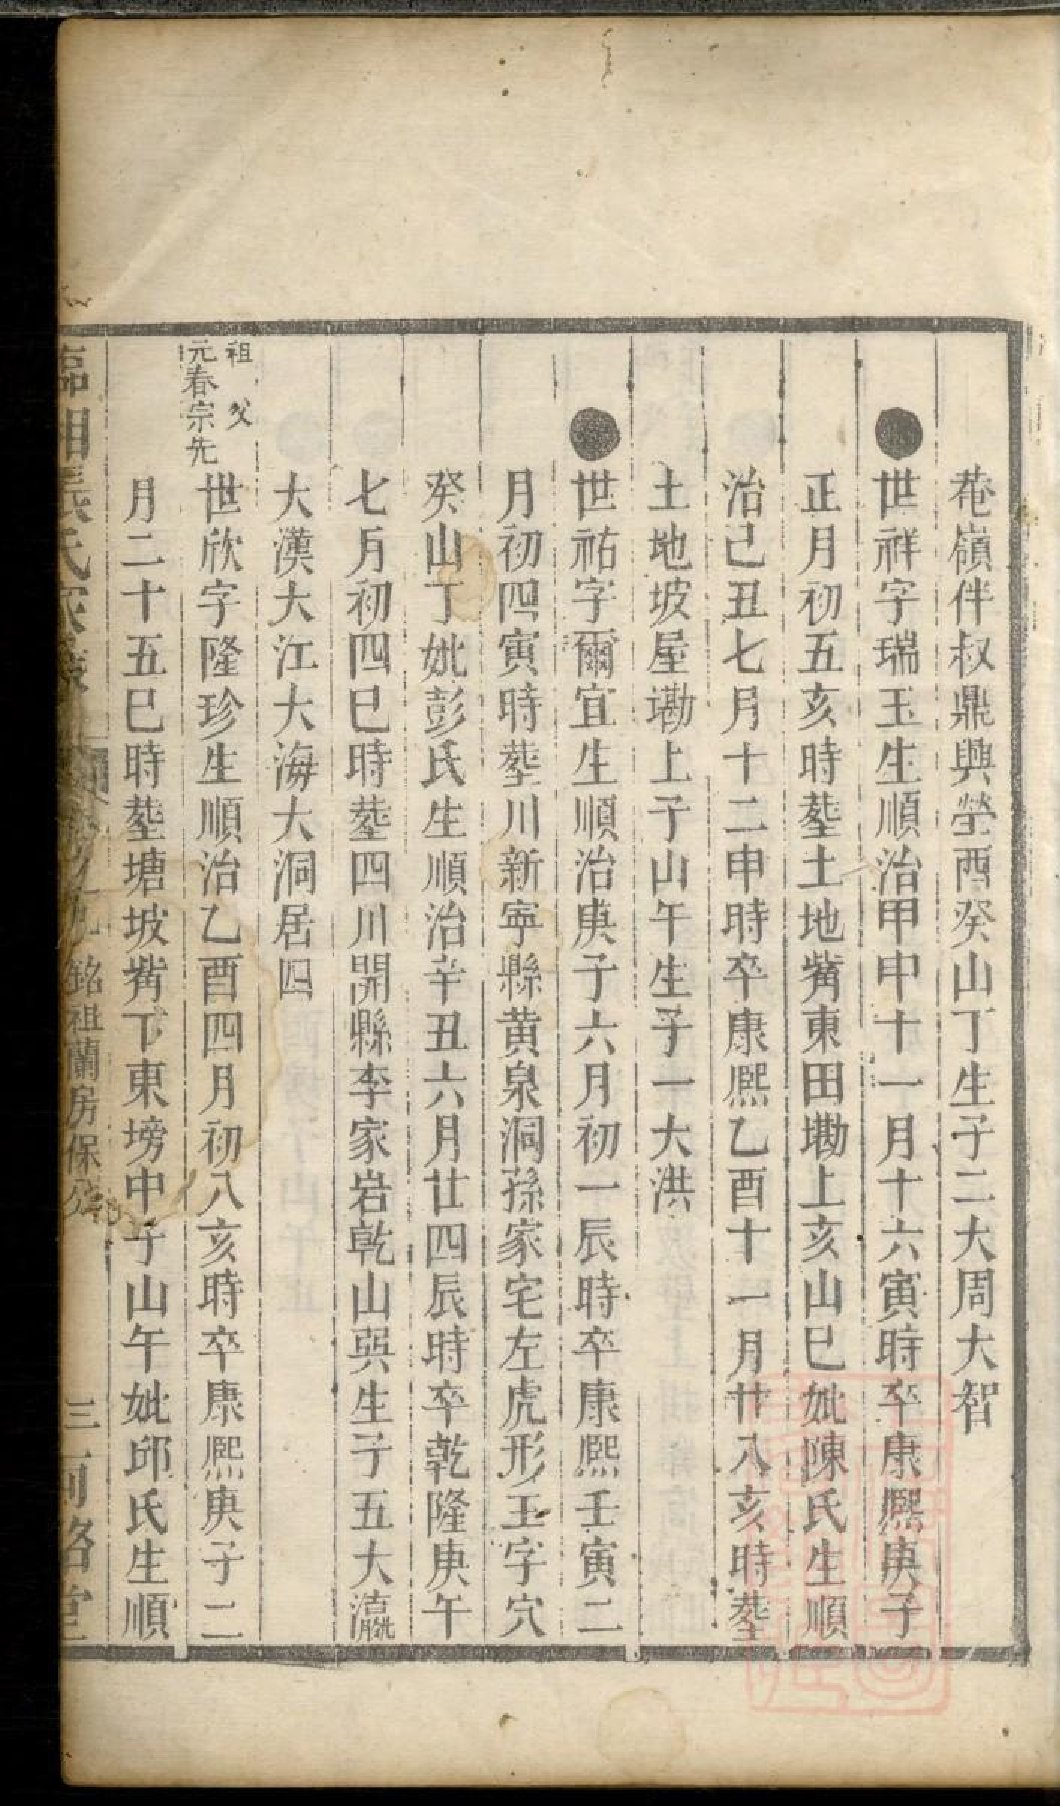 菴嶺伴叔鼎興塋酉癸山丁生子二大周大智
世祥字瑞玉生順治甲申十一月十六寅時卒康熙庚子
正月初五亥時塟土地嘴東田墈上亥山巳妣陳氏生順
治己丑七月十二申時卒康熙乙酉十一月廿八亥時塟
土地坡屋墈上子山午生子一大洪
世祐字爾宜生順治庚子六月初一辰時卒康熙壬寅二
月初四寅時塟川新寧縣黄泉洞孫家宅左虎形王字穴
癸山丁妣彭氏生順治辛丑六月廿四辰時卒乾隆庚午
七月初四巳時塟四川開縣李家岩乾山巽生子五大瀛
大漢大江大海大洞居四
祖父
元春宗先
世欣字隆珍生順治乙酉四月初八亥時卒康熙庚子二
月二十五巳時塟塘坡嘴下東塝中子山午妣邱氏生順
銘祖蘭房保